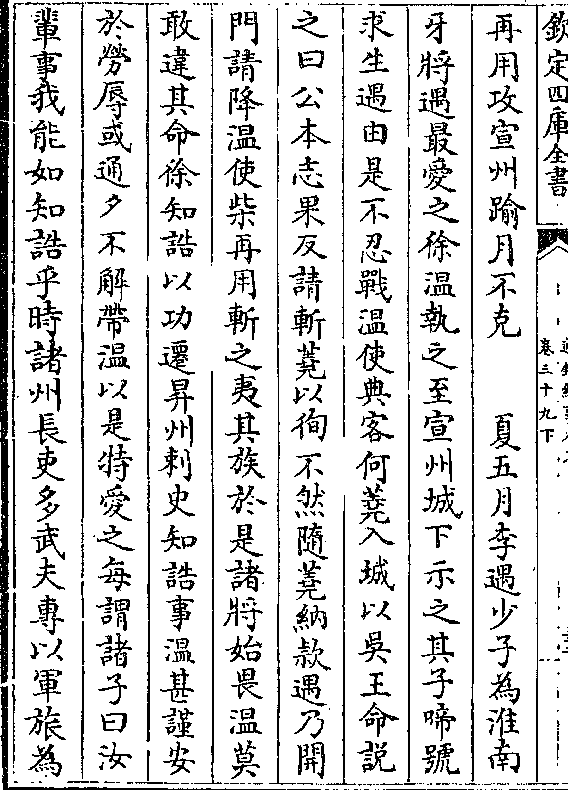 欽定四庫全書
卷三十九下
再用攻宣州踰月不克　夏五月李遇少子為淮南
牙將遇最愛之徐温執之至宣州城下示之其子啼號
求生遇由是不忍戰温使典客何蕘入城以吳王命説
之曰公本志果反請斬蕘以徇不然隨蕘納款遇乃開
門請降温使柴再用斬之夷其族於是諸將始畏温莫
敢違其命徐知誥以功遷昇州刺史知誥事温甚謹安
於勞辱或通夕不解帶温以是特愛之每謂諸子曰汝
輩事我能如知誥乎時諸州長吏多武夫專以軍旅為